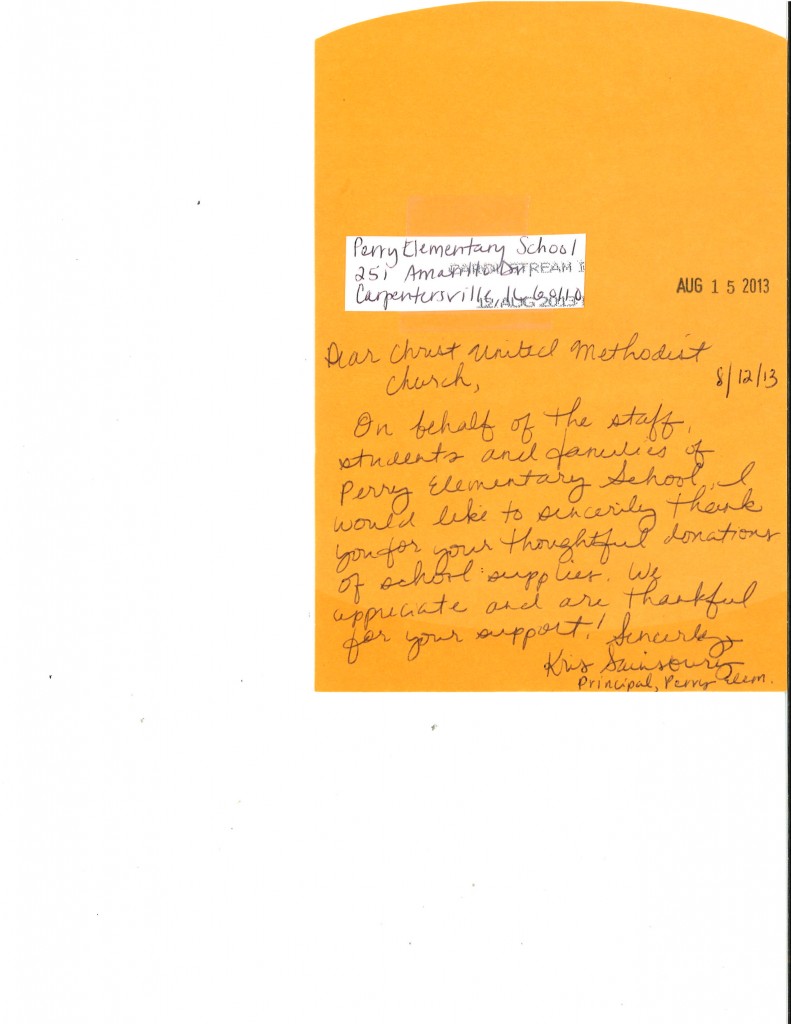 Perry Elementary School
251 Amarillo Dr
Carpentersville, IL 60110
12 AUG 2013
AUG 15 2013
Dear Christ United Methodist
Church,
8/12/13
On behalf of the staff,
students and families of
Perry Elementary School, I
would like to sincerily thank
you for your thoughtful donations
of school supplies. We
appreciate and are thankful
for your support! Sincerly,
Kris Sainsbury
Principal, Perry Elem.